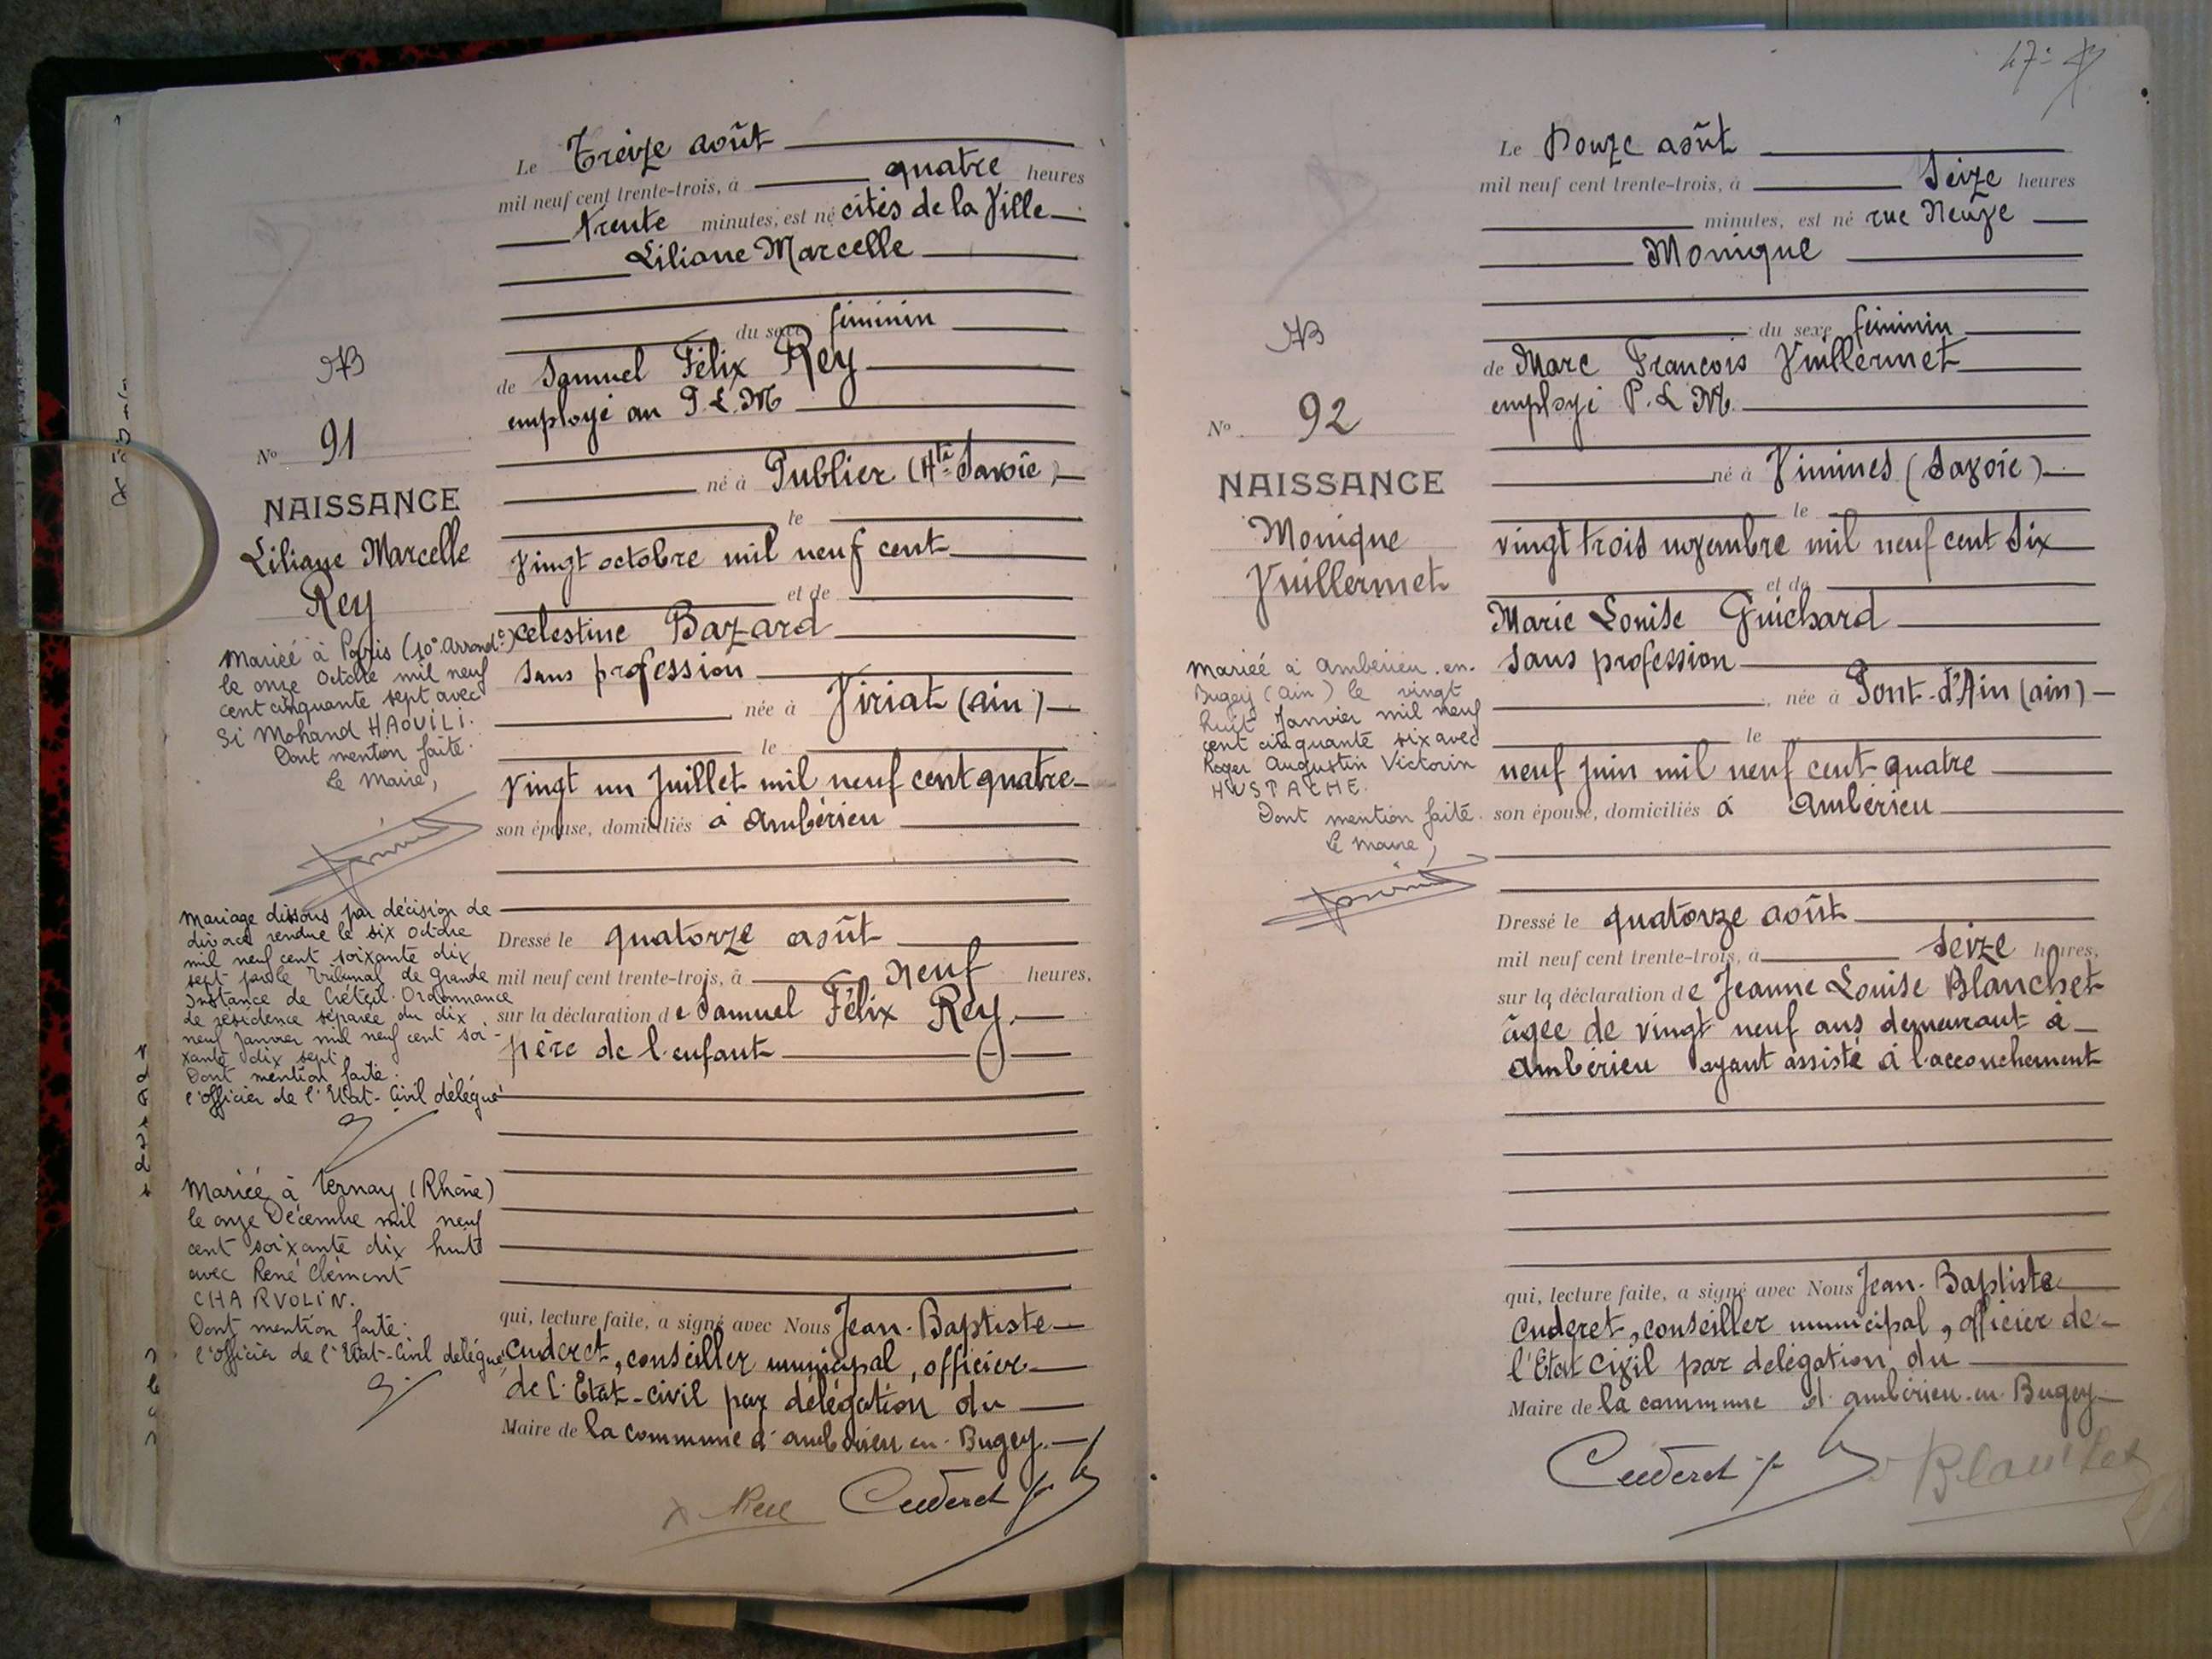 Le Treize août
mil neuf cent trente-trois, à quatre heures
trente minutes, est né cités de la Ville
Liliane Marcelle
du sexe féminin
de Samuel Félix Rey
employé au P.L.M
né à Publier (Hte Savoie)
le
vingt octobre mil neuf cent
et de
Celestine Bazard
sans profession
née à Viriat (ain)
le
vingt un Juillet mil neuf cent quatre
son épouse, domiciliés à Ambérieu
Dressé le quatorze août
mil neuf cent trente-trois, à neuf heures,
sur la déclaration de Samuel Félix Rey
père de l'enfant
qui, lecture faite, a signé avec Nous Jean-Baptiste
Cuderet, conseiller municipal, officier
de l'Etat-civil par délégation du
Maire de la commune d'ambérieu-en-Bugey.
Cuderet
AB
No 91
NAISSANCE
Liliane Marcelle
Rey
Mariée à Paris (10e Arrondt)
le onze Octobre mil neuf
cent cinquante sept avec
Si Mohand HAOUILI.
Dont mention faite.
Le Maire,
Mariage dissous par décision de
divorce rendue le six Octobre
mil neuf cent soixante dix
sept par le Tribunal de Grande
Instance de Créteil. Ordonnance
de résidence séparée du dix
neuf Janvier mil neuf cent soi-
xante dix sept.
Dont mention faite.
l'Officier de l'Etat-Civil délégué
Mariée à Ternay (Rhône)
le onze Décembre mil neuf
cent soixante dix huit
avec René Clément
CHARVOLIN.
Dont mention faite.
l'Officier de l'Etat-Civil délégué,
47
Le Douze août
mil neuf cent trente-trois, à Seize heures
minutes, est né rue Neuve
Monique
du sexe féminin
de Marc François Vuillermet
employé P.L.M.
né à Vimines (Savoie)
le
vingt trois novembre mil neuf cent six
et de
Marie Louise Guichard
sans profession
, née à Pont-d'Ain (ain)
le
neuf juin mil neuf cent quatre
son épouse, domiciliés à Ambérieu
Dressé le quatorze août
mil neuf cent trente-trois, à seize heures,
sur la déclaration de Jeanne Louise Blanchet
âgée de vingt neuf ans demeurant à
Ambérieu ayant assisté à l'accouchement
qui, lecture faite, a signé avec Nous Jean-Baptiste
Cuderet, conseiller municipal, officier de
l'Etat Civil par délégation du
Maire de la commune d'ambérieu-en-Bugey
Cuderet Blanchet
AB
No 92
NAISSANCE
Monique
Vuillermet
Mariée à Ambérieu-en-
Bugey (Ain) le vingt
huit Janvier mil neuf
cent cinquante six avec
Roger Augustin Victorin
HUSTACHE.
Dont mention faite.
Le Maire,